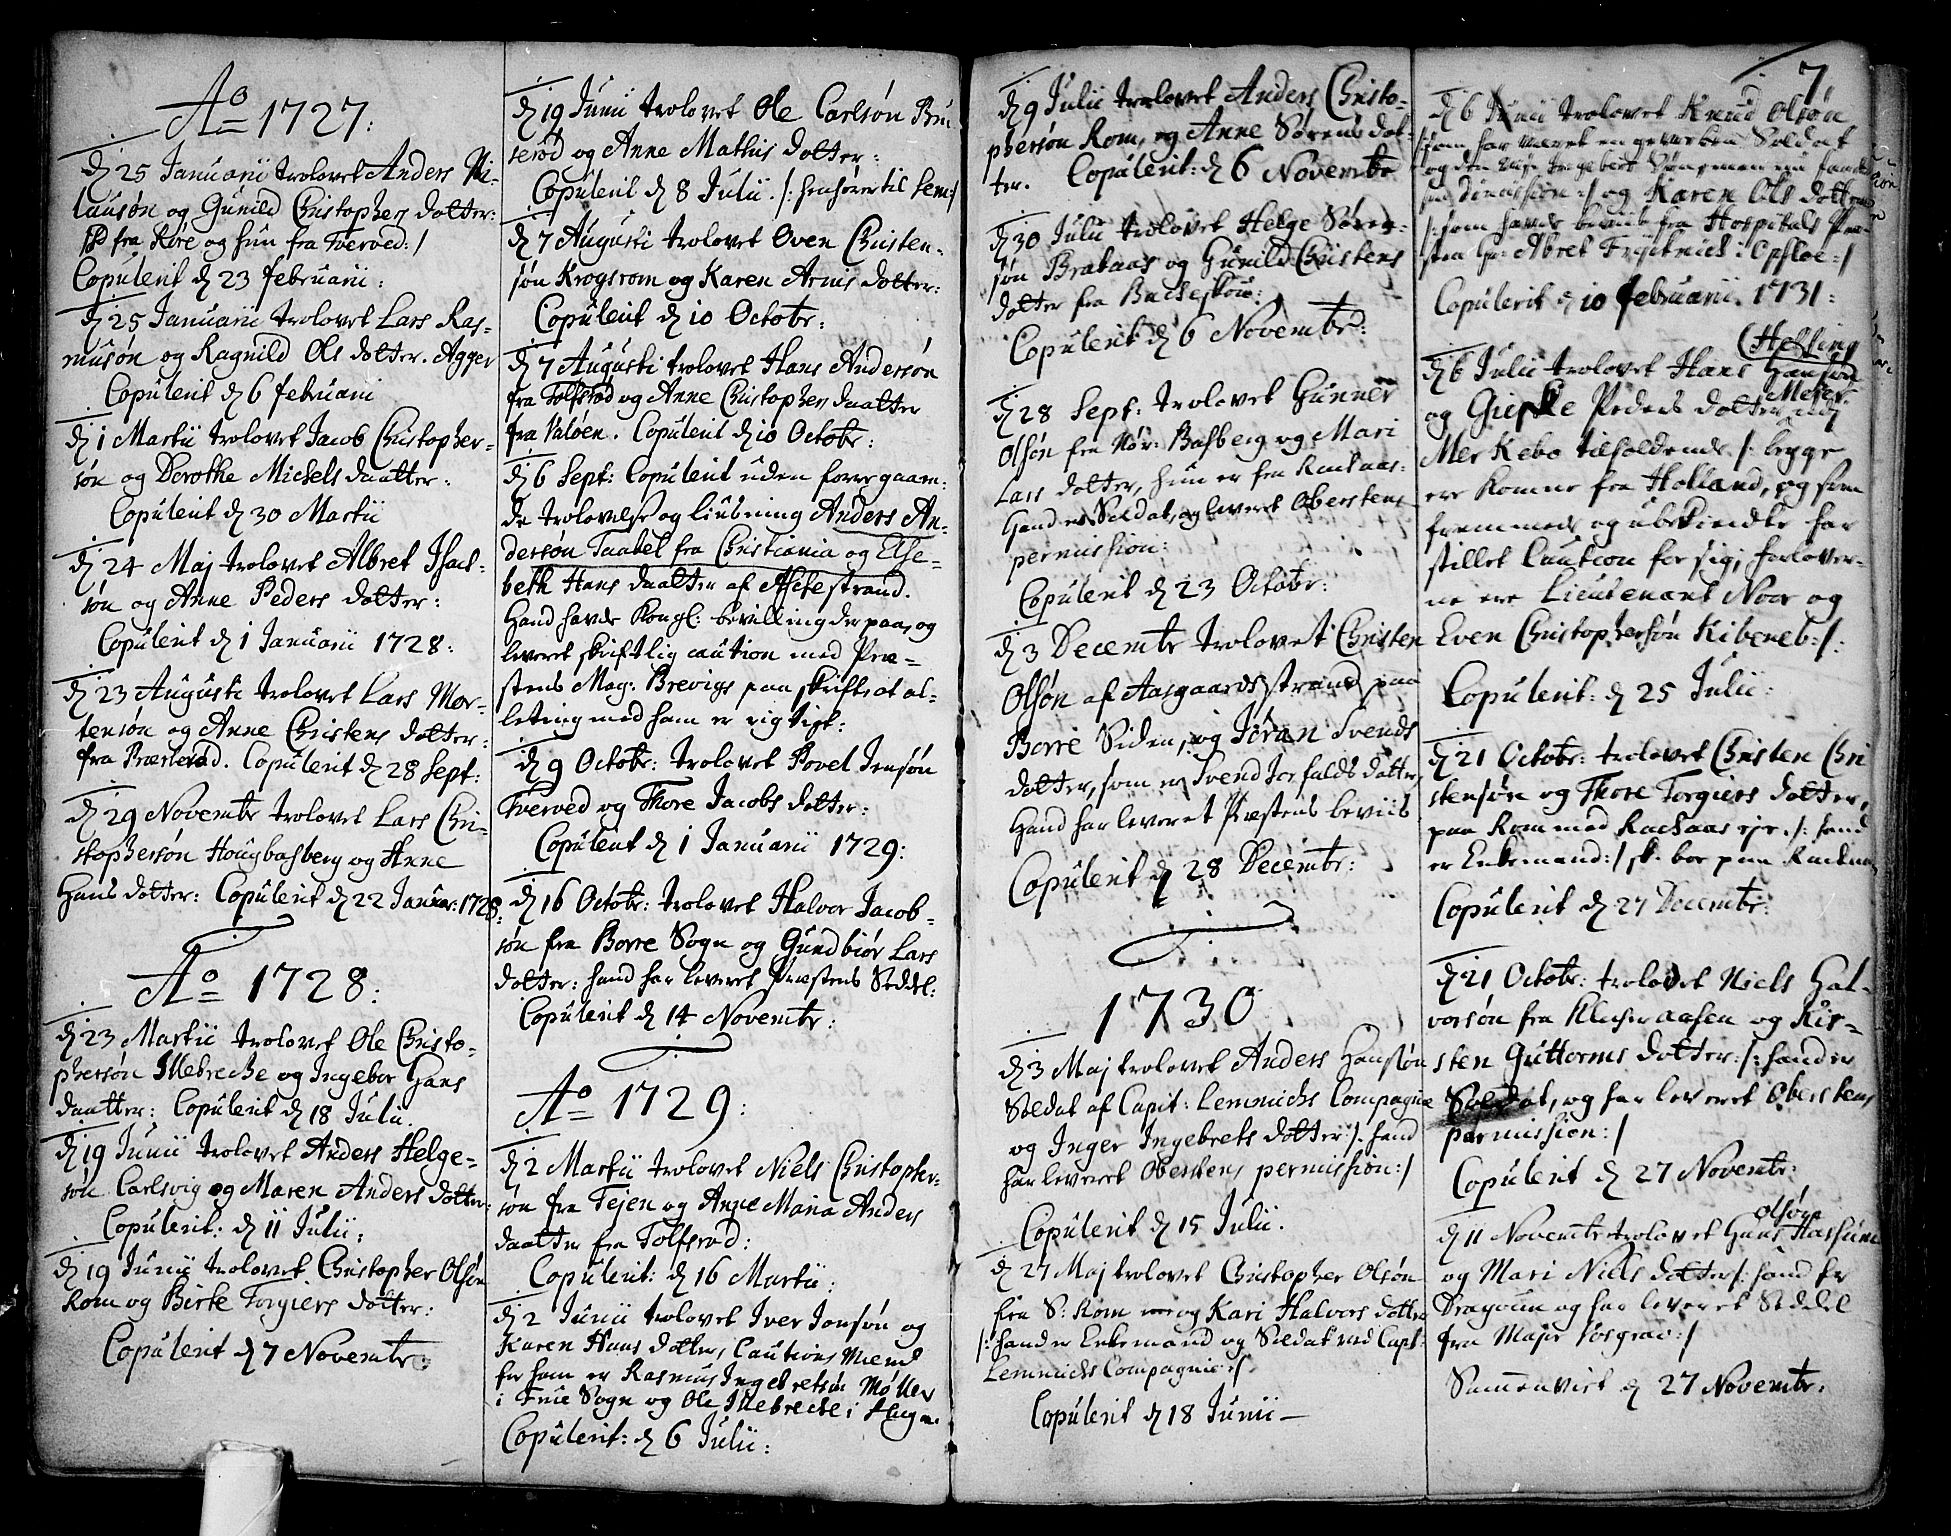 Ao 1727:
d 25 Januarii trolovet Anders Ni-
lausøn og Gunild Christophers dotter:
fra Røre og hun fra Tverved:/
Copulerit d 23 februarii:
d 25 Januarii trolovet Lars Ras-
musøn og Ragnild Ols dotter. Agger
Copulerit d 6 februarii
d 1 Martii trolovet Jacob Christopher-
søn og Dorothe Michels daatter:
Copulerit d 30 Martii
d 24 Maj trolovet Albret Isac-
søn og Anne Peders dotter:
Copulerit d 1 Januarii 1728:
d 23 Augusti trolovet Lars Mor-
tensøn og Anne Christens dotter:
fra Præsterød. Copulerit d 28 Sept:
d 29 Novembr trolovet Lars Chri-
stophersøn Hougbasberg og Anne
Hans dotter: Copulerit d 22 Januar: 1728.
Ao 1728:
d 23 Martii trolovet Ole Christo-
phersøn Illebreche og Ingebor Hans
daatter: Copulerit d 18 Julii.
d 19 Junii trolovet Anders Helge-
søn Carlsvig og Maren Anders dotter:
Copulerit: d 11 Julii:
d 19 Junii trolovet Christopher Olsøn
Rom og Birte Torgiers dotter:
Copulerit d 7 Novembr:
d 19 Junii trolovet Ole Carlsøn Bru
serød og Anne Mathis dotter:
Copulerit d 8 Julii. /: henhører til Sem:/
d 7 Augusti trolovet Oven Christen-
søn Krogsrom og Karen Arnis dotter:
Copulerit d 10 Octobr:
d 7 Augusti trolovet Hans Andersøn
fra Tolfsrød og Anne Christophers daatter
fra Valøen. Copulerit d 10 Octobr:
d 6 Sept: Copulerit uden forregaaen-
de trolovelse og liusning Anders An-
dersøn Taabel fra Christiania og Else-
beth Hans daatter af Aschestrand.
Hand hafde Kongl: bevilling der paa, og
leveret skriftlig caution med Præ-
stens Mag: Brevigs paaskrift at al-
leting med ham er rigtigt:
d 9 Octobr: trolovet Povel Jensøn
Tverved og Thore Jacobs dotter:
Copulerit d 1 Januarii 1729:
d 16 Octobr: trolovet Halvor Jacob-
søn fra Borre Sogn og Gundbiør Lars
dotter: hand har leveret Præstens Seddel:
Copulerit d 14 Novembr:
Ao 1729:
d 2 Martii trolovet Niels Christopher-
søn fra Tejen og Anne Maria Anders
daatter fra Tolfsrød:
Copulerit: d 16 Martii:
d 2 Junii trolovet Iver Jonsøn og
Karen Hans dotter, Cautions Mænd
for ham er Rasmus Ingebretsøn Møller
i Frue Sogn og Ole Illebreche i Haugen.
Copulerit: d 6 Julii:
d 9 Julii trolovet Anders Christo-
phersøn Rom, og Anne Sørens dot-
ter. Copulerit: d 6 Novembr
d 30 Julii trolovet Helge Søren-
søn Brataas og Gunild Christens
dotter fra Bacheskou:
Copulerit d 6 Novembr:
d 28 Sept: trolovet Gunner
Olsøn fra Nør: Basberg og Mari
Lars dotter, hun er fra Rachaas:
Hand er Soldat, og leveret Oberstens
permission:
Copulerit d 23 Octobr:
d 3 Decembr trolovet Christen
Olsøn af Aasgaardsstrand paa
Borre Siden, og Jøran Svends
dotter, som er Svend Jerfalds dotter,
Hand har leveret Præstens beviis
Copulerit d 28 Decembr:
1730
d 3 Maj trolovet Anders Hansøn
Soldat af Capit: Lemmichs Compagnie
og Inger Ingebrets dotter /: hand
har leveret Oberstens permission:/
Copulerit d 15 Julii.
d 27 Maj trolovet Christopher Olsøn
fra S: Rom og Kari Halvors dotter
/: hand er Enkemand og Soldat ved Capt:
Lemmichs Compagnie:/
Copulerit d 18 Junii —
7
d 6 Junii trolovet Knud Olsøn
/: som har været en geworben Soldat
og den
dimission:/ og Karen Ols dotter
/: som hafde beviis fra Hospitals Præ-
sten Hr: Abret : Opsloe:/
Copulerit d 10 februarii. 1731:
d 6 Julii trolovet Hans Hansøn
og Gieske Peders dotter
Mer Kebo tilholdende /: begge
ere komne fra Holland, og som
fremmede og ubekiendte har
stillet Caution for sig, forlover-
ne ere Lieutenant Noor og
Even Christophersøn Kibeneb:/:
Copulerit: d 25 Julii:
d 21 Octobr: trolovet Christen Chri
stensøn og Thore Torgiers dotter,
paa Rom med Rachaas eje. /: hand
er Enkemand:/ bor paa Rachaas
Copulerit d 27 Decembr:
d 21 Octobr: trolovet Niels Hal-
vorsøn fra Kleseraasen og Kir-
sten Guttorms dotter: /: hand er
Soldat, og har leveret Oberstens
permission:/
Copulerit d 27 Novembr:
olsøn
d 11 Novembr trolovet Hans Hassum
og Mari Niels dotter /: hand er
Dragoun og har leveret Seddel
fra Major Vosgrav:/
Sammenviet d 27 Novembr.